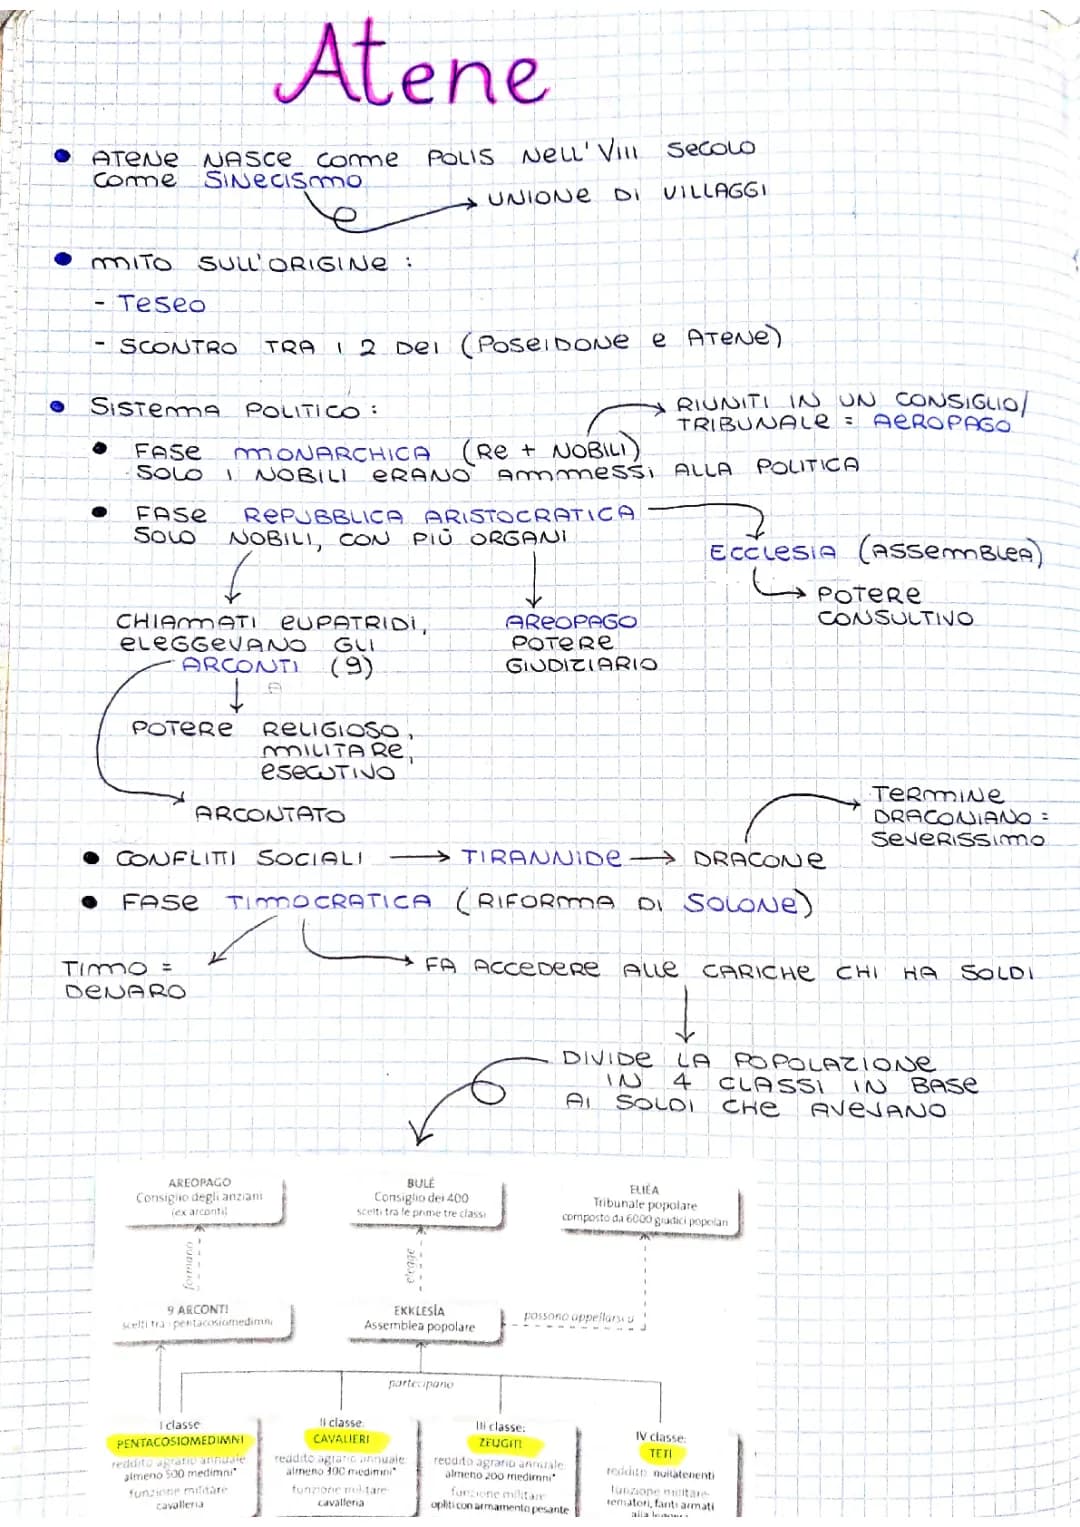 Atene
• ATENE NASCE COME POLIS NELL'VIII SECOLO
COME SINECISMO
→ UNIONE DI VILLAGGI
• MITO SULL'ORIGINE :
- TESEO
- SCONTRO TRA I 2 DEI (POSEIDONE e ATENE)
• SISTEMA POLITICO :
→ RIUNITI IN UN CONSIGLIO/
TRIBUNALE = AEROPAGO
• FASE MONARCHICA (RE + NOBILI)
SOLO I NOBILI ERANO AMMESSI ALLA POLITICA
• FASE REPUBBLICA ARISTOCRATICA
SOLO NOBILI, CON PIÙ ORGANI
ECCLESIA (ASSEMBLEA)
→ POTERE
CONSULTIVO
CHIAMATI EUPATRIDI,
ELEGGEVANO GLI
ARCONTI (9)
AREOPAGO
POTERE
GIUDIZIARIO
POTERE RELIGIOSO,
MILITARE,
ESECUTIVO
ARCONTATO
TERMINE
DRACONIANO =
SEVERISSIMO
• CONFLITTI SOCIALI → TIRANNIDE → DRACONE
• FASE TIMOCRATICA (RIFORMA DI SOLONE)
TIMO =
DENARO
→ FA ACCEDERE ALLE CARICHE CHI HA SOLDI
DIVIDE LA POPOLAZIONE
IN 4 CLASSI IN BASE
AI SOLDI CHE AVEVANO
AREOPAGO
Consiglio degli anziani
(ex arconti)
BULÉ
Consiglio dei 400
scelti tra le prime tre classi
ELIÉA
Tribunale popolare
composto da 6000 giudici popolari
formano
elegge
9 ARCONTI
scelti tra i pentacosiomedimni
EKKLESÍA
Assemblea popolare
possono appellarsi a
partecipano
I classe:
PENTACOSIOMEDIMNI
reddito agrario annuale
almeno 500 medimni*
funzione militare
cavalleria
II classe:
CAVALIERI
reddito agrario annuale:
almeno 300 medimni*
funzione militare
cavalleria
III classe:
ZEUGITI
reddito agrario annuale:
almeno 200 medimni*
funzione militare
opliti con armamento pesante
IV classe:
TETI
reddito: nullatenenti
funzione militare:
rematori, fanti armati